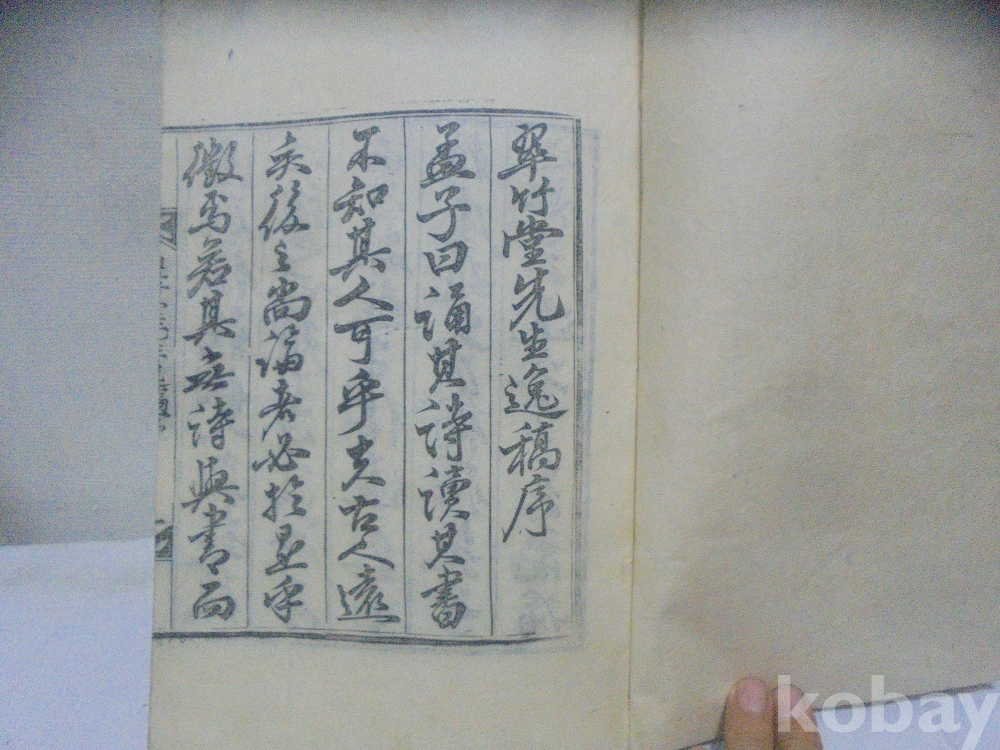 翠竹堂先生逸稿序
孟子曰誦其詩讀其書
不知其人可乎夫古人遠
矣後之尚論者必於是乎
徵焉若其無詩與書而
kobay